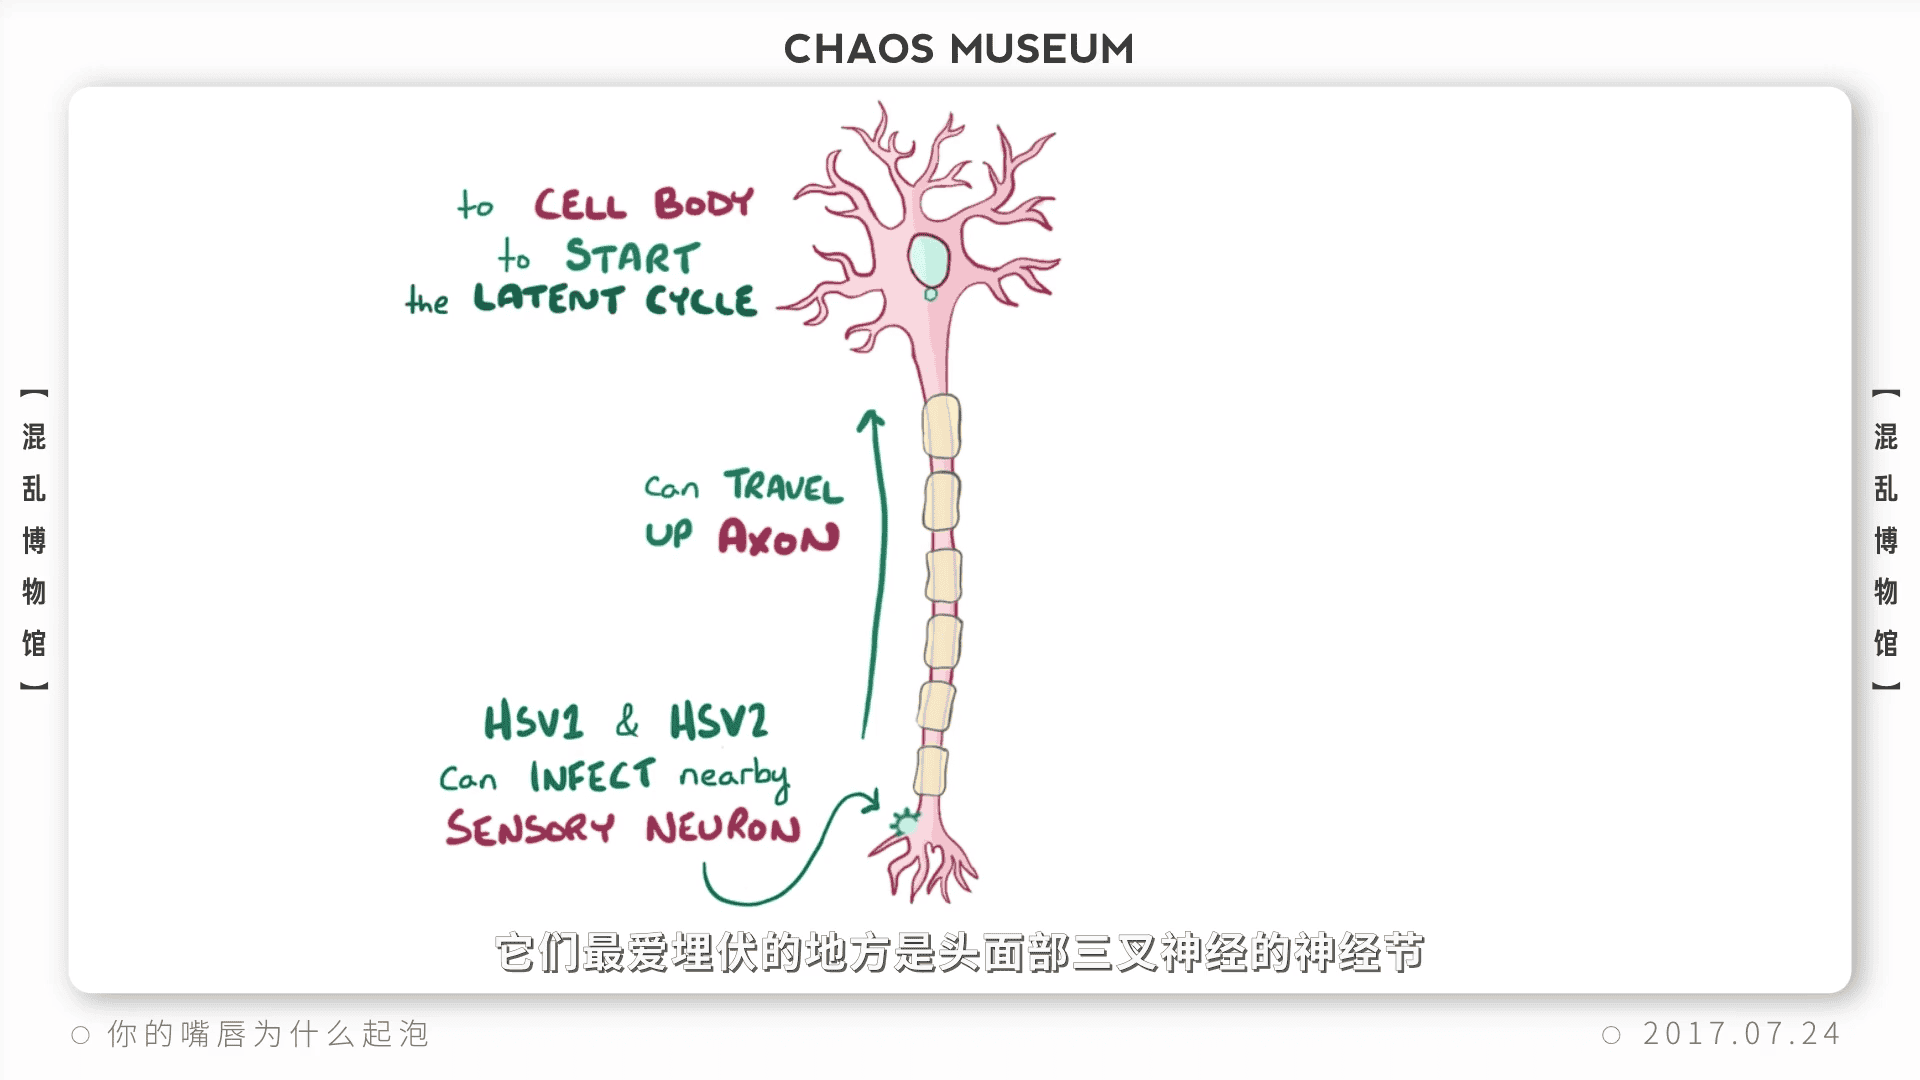 CHAOS MUSEUM
to CELL BODY
to START
the LATENT CYCLE
can TRAVEL
UP AXON
HSV1 & HSV2
can INFECT nearby
SENSORY NEURON
它们最爱埋伏的地方是头面部三叉神经的神经节
【混乱博物馆】
【混乱博物馆】
你的嘴唇为什么起泡
2017.07.24